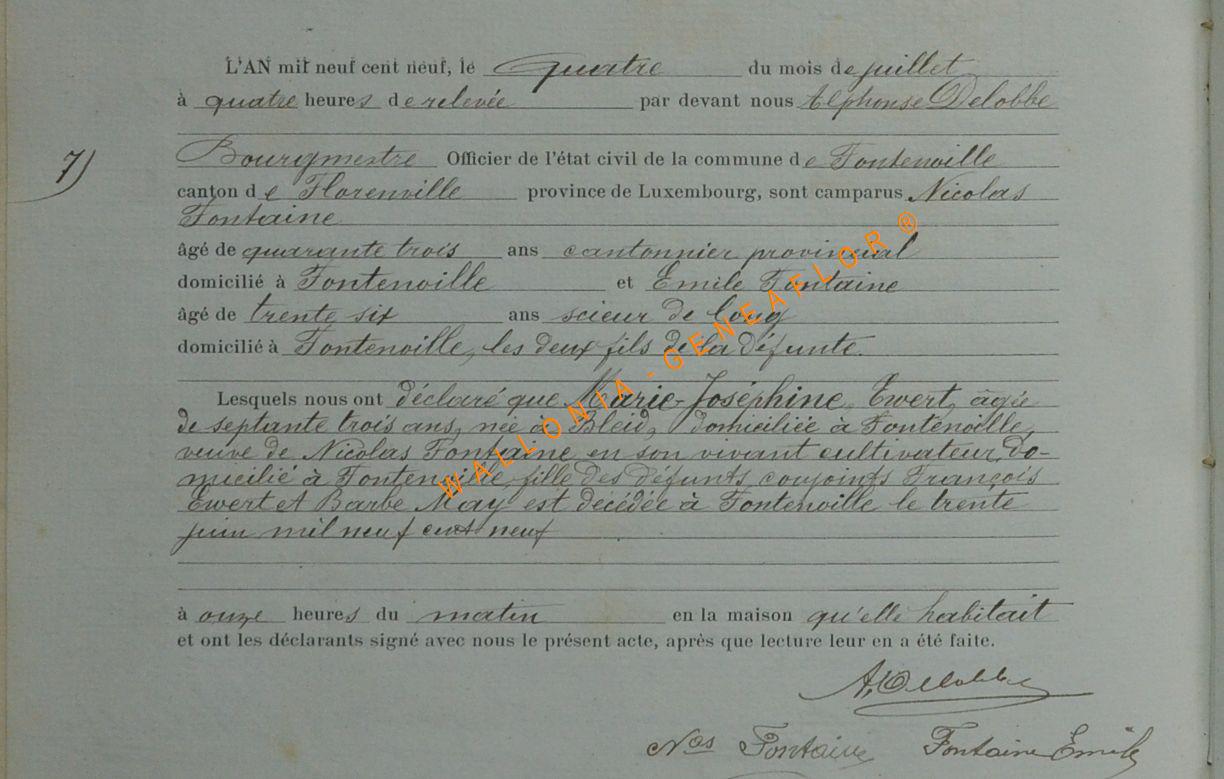 L'AN mil neuf cent neuf, le quatre du mois de juillet
à quatre heures de relevée par devant nous Alphonse Delobbe
7)
Bourgmestre Officier de l'état civil de la commune de Fontenoille
canton de Florenville province de Luxembourg, sont camparus Nicolas
Fontaine
âgé de quarante trois ans cantonnier provincial
domicilié à Fontenoille et Emile Fontaine
âgé de trente six ans scieur de long
domicilié à Fontenoille, les deux fils de la défunte.
Lesquels nous ont déclaré que Marie-Joséphine Ewert, âgée
de septante trois ans, née à Bleid, domiciliée à Fontenoille,
veuve de Nicolas Fontaine en son vivant cultivateur, do-
micilié à Fontenoille, fille des défunts conjoints François
Ewert et Barbe May est décédée à Fontenoille le trente
juin mil neuf cent neuf
à onze heures du matin en la maison qu'elle habitait
et ont les déclarants signé avec nous le présent acte, après que lecture leur en a été faite.
A. Delobbe
Nas Fontaine Fontaine Emile
WALLONIA - GENEAFLOR ®